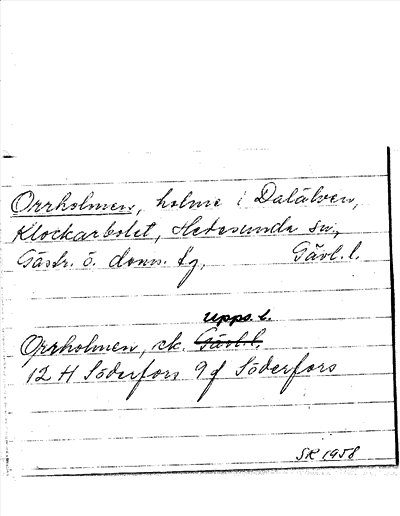 Orrholmen, holme i Dalälven,
Klockarbolet, Hedesunda sn,
Gästr. ö. doms. fg. Gävl. l.
Upps. l.
Orrholmen, ek. Gävl. l.
12 H Söderfors 9 f Söderfors
SK 1958